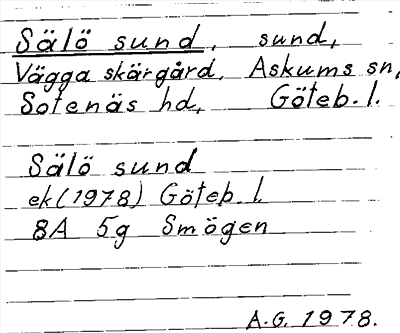 Sälö sund, sund,
Vägga skärgård, Askums sn,
Sotenäs hd, Göteb. l.
Sälö sund
ek (1978) Göteb. l.
8A 5g Smögen
A.G. 1978.